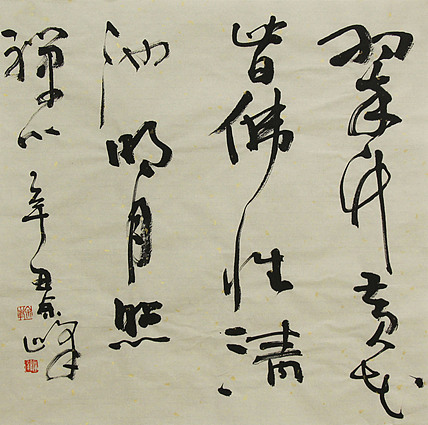 翠竹黄花
皆佛性清
池明月照
禅心